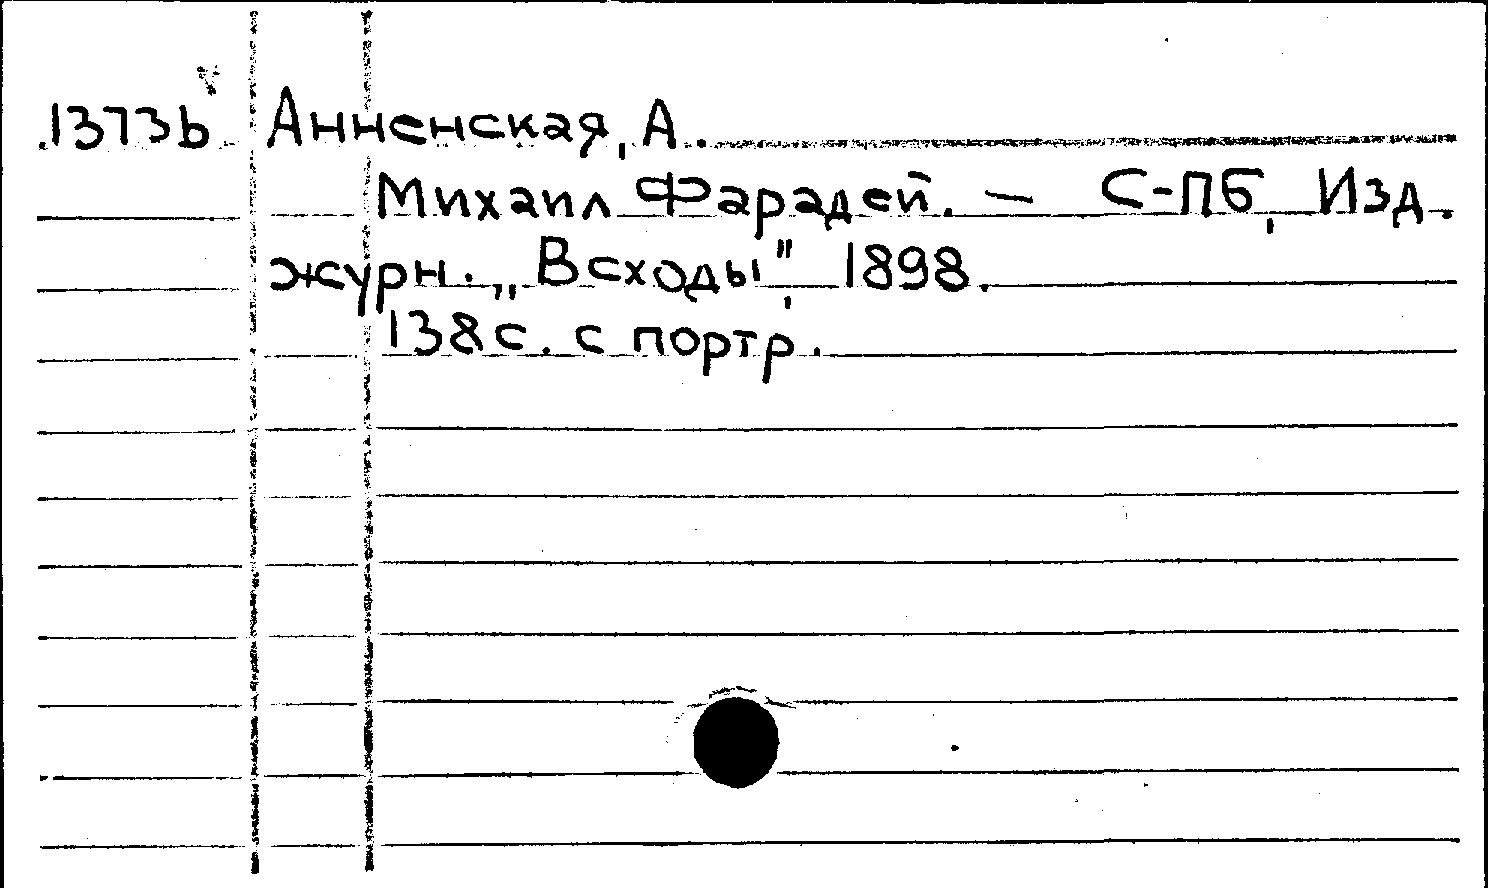 1373b Анненская, А.
Михаил Фарадей. — С-ПБ, Изд.
журн. „Всходы", 1898.
138 с. с портр.